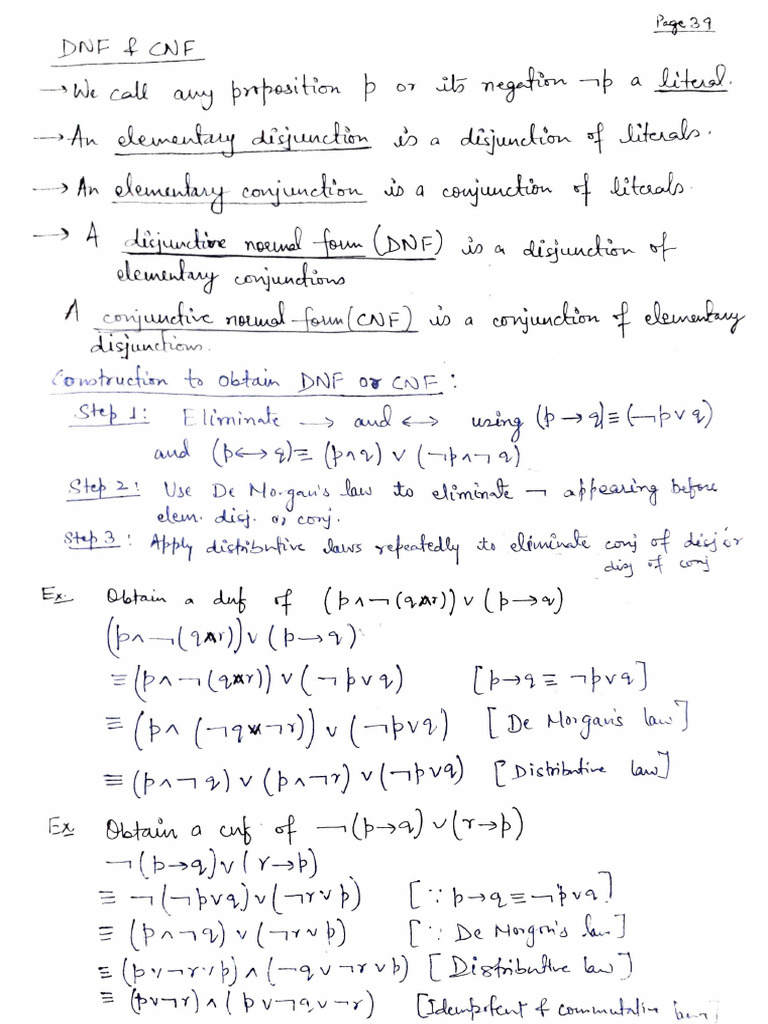 Page 39
DNF & CNF
→ We call any proposition p or its negation ¬p a literal.
→ An elementary disjunction is a disjunction of literals.
→ An elementary conjunction is a conjunction of literals.
→ A disjunctive normal form (DNF) is a disjunction of
elementary conjunctions
A conjunctive normal form (CNF) is a conjunction of elementary
disjunctions.
Construction to obtain DNF or CNF :
Step 1: Eliminate → and ↔ using (p → q) ≡ (¬p ∨ q)
and (p ↔ q) ≡ (p ∧ q) ∨ (¬p ∧ ¬q)
Step 2: Use De Morgan's law to eliminate ¬ appearing before
elem. disj. or conj.
Step 3: Apply distributive laws repeatedly to eliminate conj of disj or
disj of conj
Ex. Obtain a dnf of (p ∧ ¬(q ∧ r)) ∨ (p → q)
(p ∧ ¬(q ∧ r)) ∨ (p → q)
≡ (p ∧ ¬(q ∧ r)) ∨ (¬p ∨ q) [p → q ≡ ¬p ∨ q]
≡ (p ∧ (¬q ∨ ¬r)) ∨ (¬p ∨ q) [De Morgan's law]
≡ (p ∧ ¬q) ∨ (p ∧ ¬r) ∨ (¬p ∨ q) [Distributive law]
Ex Obtain a cnf of ¬(p → q) ∨ (r → p)
¬(p → q) ∨ (r → p)
≡ ¬(¬p ∨ q) ∨ (¬r ∨ p) [∵ p → q ≡ ¬p ∨ q]
≡ (p ∧ ¬q) ∨ (¬r ∨ p) [∵ De Morgan's law]
≡ (p ∨ ¬r ∨ p) ∧ (¬q ∨ ¬r ∨ p) [Distributive law]
≡ (p ∨ ¬r) ∧ (p ∨ ¬q ∨ ¬r) [Idempotent & commutative law]